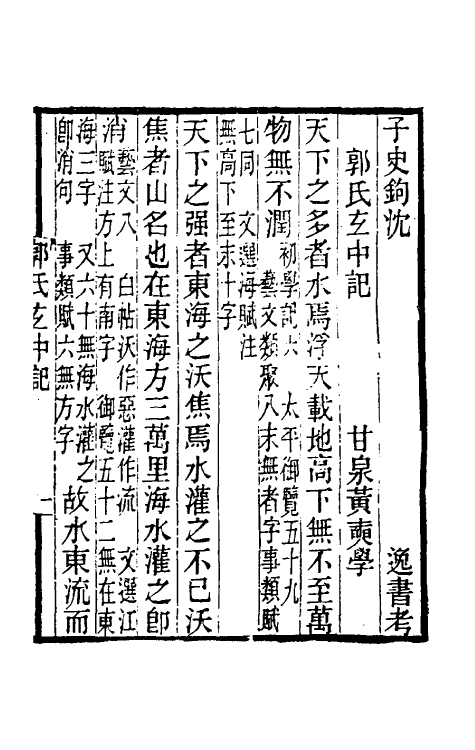 子史鉤沈 逸書考
郭氏玄中記 甘泉黃奭學
天下之多者水焉浮天載地高下無不至萬
物無不潤初學記六 太平御覽五十九
藝文類聚八末無者字事類賦
七同 文選海賦注
無高下至末十字
天下之强者東海之沃焦焉水灌之不已沃
焦者山名也在東海方三萬里海水灌之卽
消藝文八 白帖沃作惡灌作流 文選江
賦注方上有南字 御覽五十二無在東
海三字 又六十無海水灌之
卽消句 事類賦六無方字
故水東流而
郭氏玄中記 一